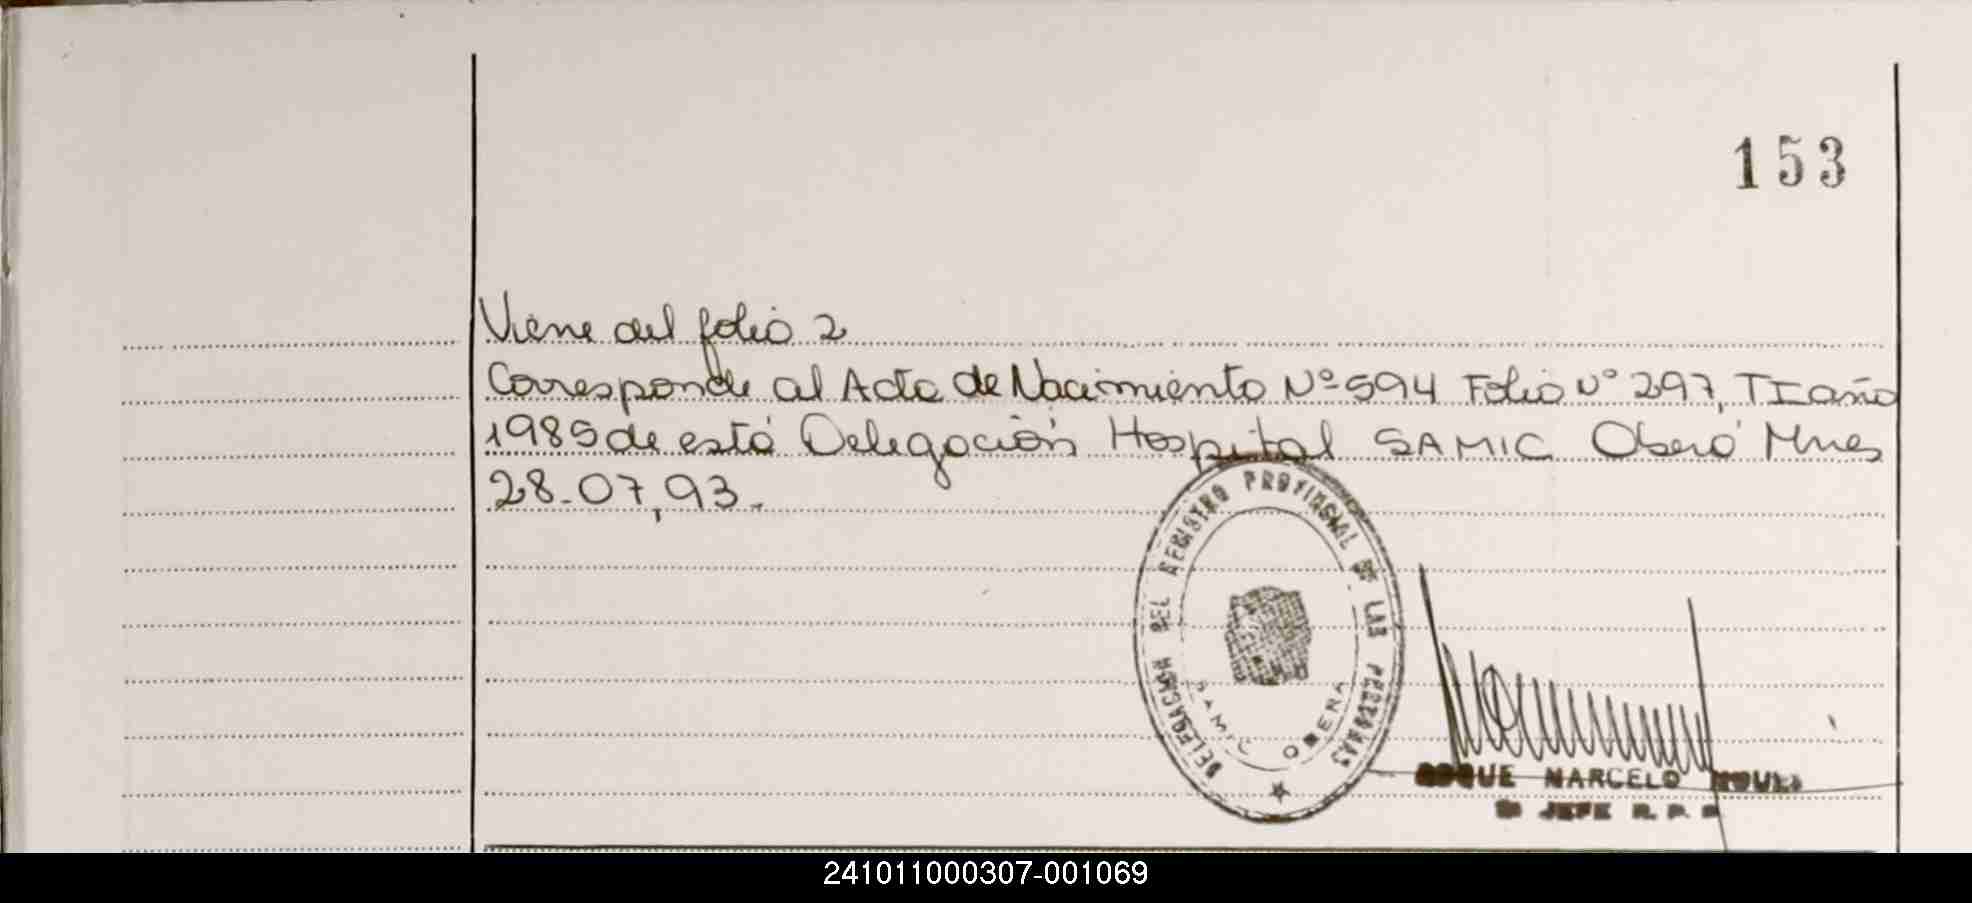 153
Viene del folio 2
Corresponde al Acta de Nacimiento Nº 594 Folio Nº 297, T I año
1985 de está Delegación Hospital SAMIC Oberá Mnes
28-07,93.-
DELEGACION DEL REGISTRO PROVINCIAL DE LAS PERSONAS
SAMIC OBERA
ROQUE MARCELO
JEFE R. P.
241011000307-001069